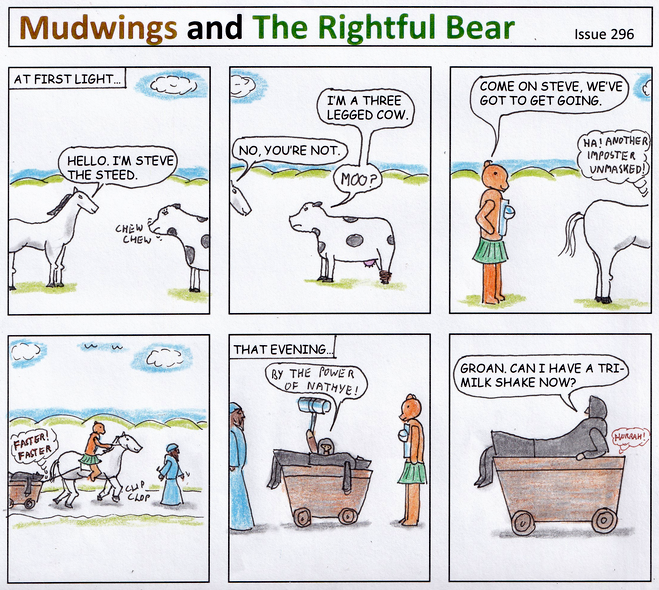 Mudwings and The Rightful Bear
Issue 296
AT FIRST LIGHT...
HELLO. I'M STEVE
THE STEED.
CHEW
CHEW
I'M A THREE
LEGGED COW.
NO, YOU'RE NOT.
MOO?
COME ON STEVE, WE'VE
GOT TO GET GOING.
HA! ANOTHER
IMPOSTER
UNMASKED!
FASTER!
FASTER
CLIP
CLOP
THAT EVENING...
BY THE POWER
OF NATHYE!
GROAN. CAN I HAVE A TRI-
MILK SHAKE NOW?
HURRAH!